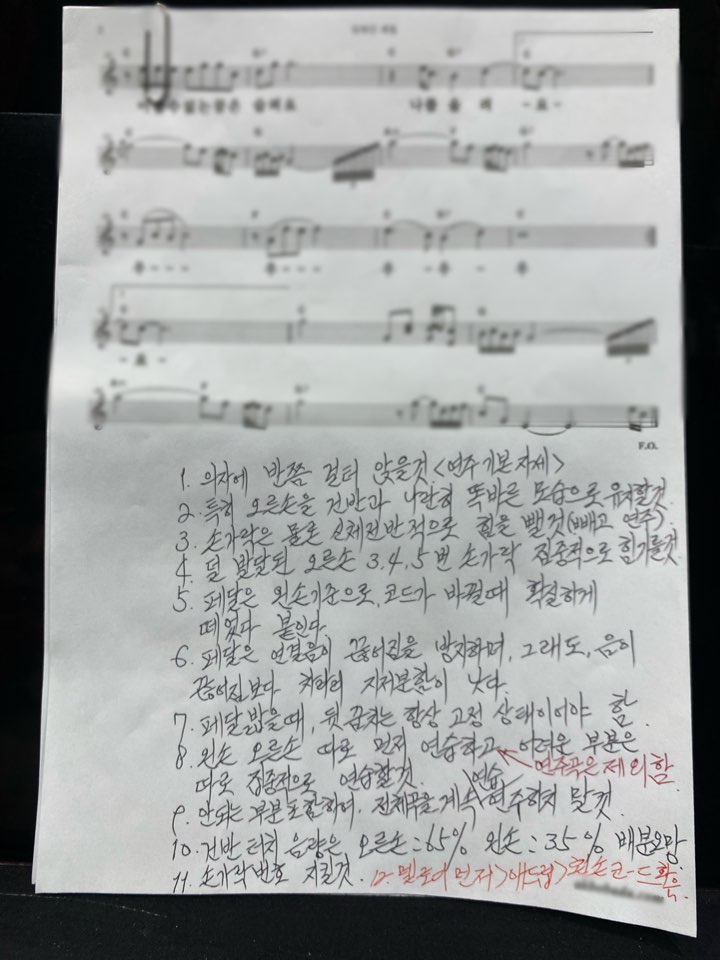 F.O.
1. 의자에 반쯤 걸터 앉을것 <연주 기본자세>
2. 특히 오른손을 건반과 나란히 똑바른 모습으로 유지할것.
3. 손가락은 물론 신체전반적으로 힘을 뺄것(빼고 연주).
4. 덜 발달된 오른손 3,4,5번 손가락 집중적으로 힘기를것
5. 페달은 왼손기준으로, 코드가 바뀔때 확실하게
떼었다 붙인다
6. 페달은 연결음이 끊어짐을 방지하며, 그래도, 음이
끊어짐보다 차라리 지저분함이 낫다.
7. 페달밟을때, 뒷꿈치는 항상 고정 상태이어야 함.
8. 왼손 오른손 따로 먼저 연습하고 어려운 부분은
따로 집중적으로 연습할것.
연주곡은 제외함.
연습
9. 안되는 부분 포함하여, 전체곡을 계속 연주하지 말것.
10. 건반 터치 음량은 오른손:65% 왼손:35% 배분요망
11. 손가락번호 지킬것.
12. 멜로디 먼저>애드립>왼손코드